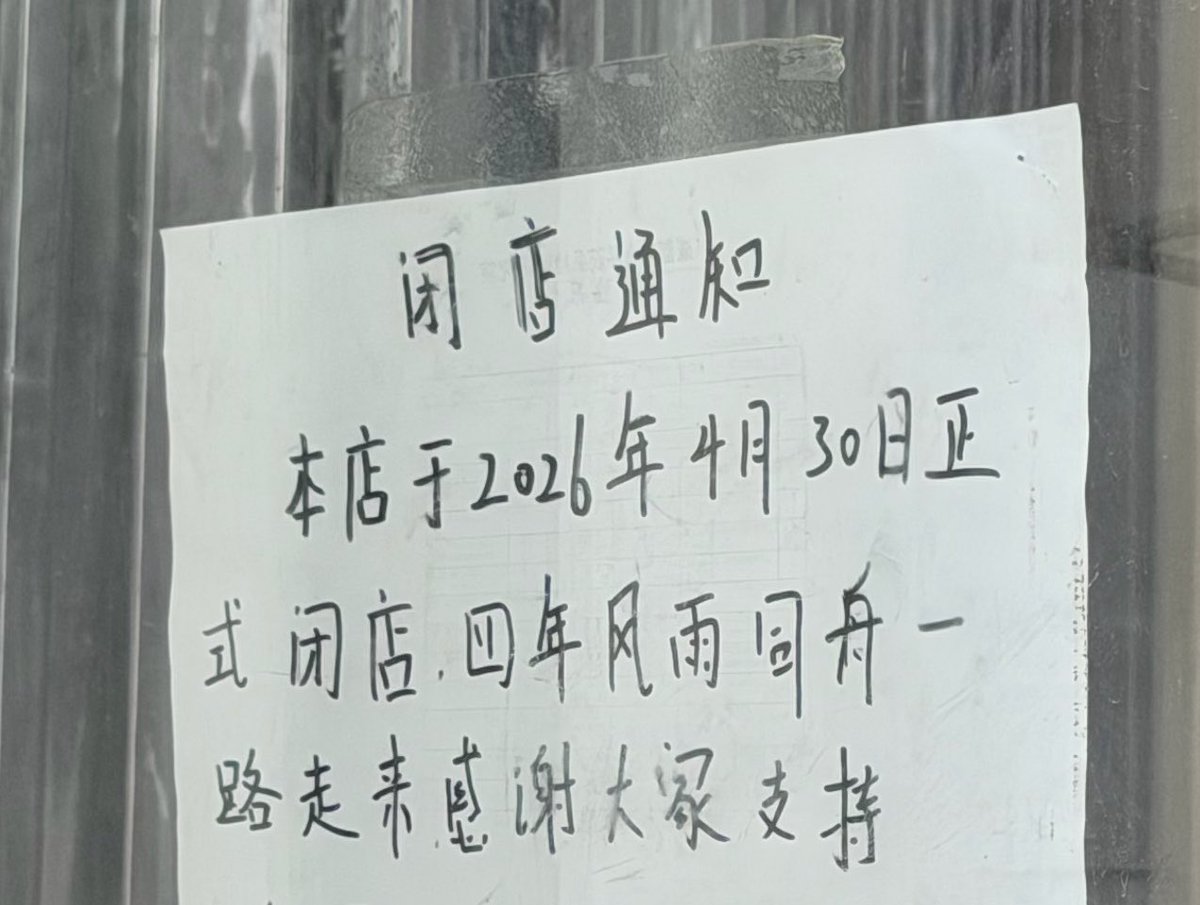 闭店通知
本店于2026年4月30日正
式闭店.四年风雨同舟一
路走来感谢大家支持